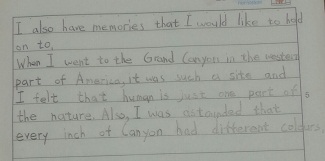 I also have memories that I would like to hold
on to.
When I went to the Grand Canyon in the western
part of America, it was such a site and
I felt that human is just one part of
the nature. Also, I was astounded that
every inch of Canyon had different colours